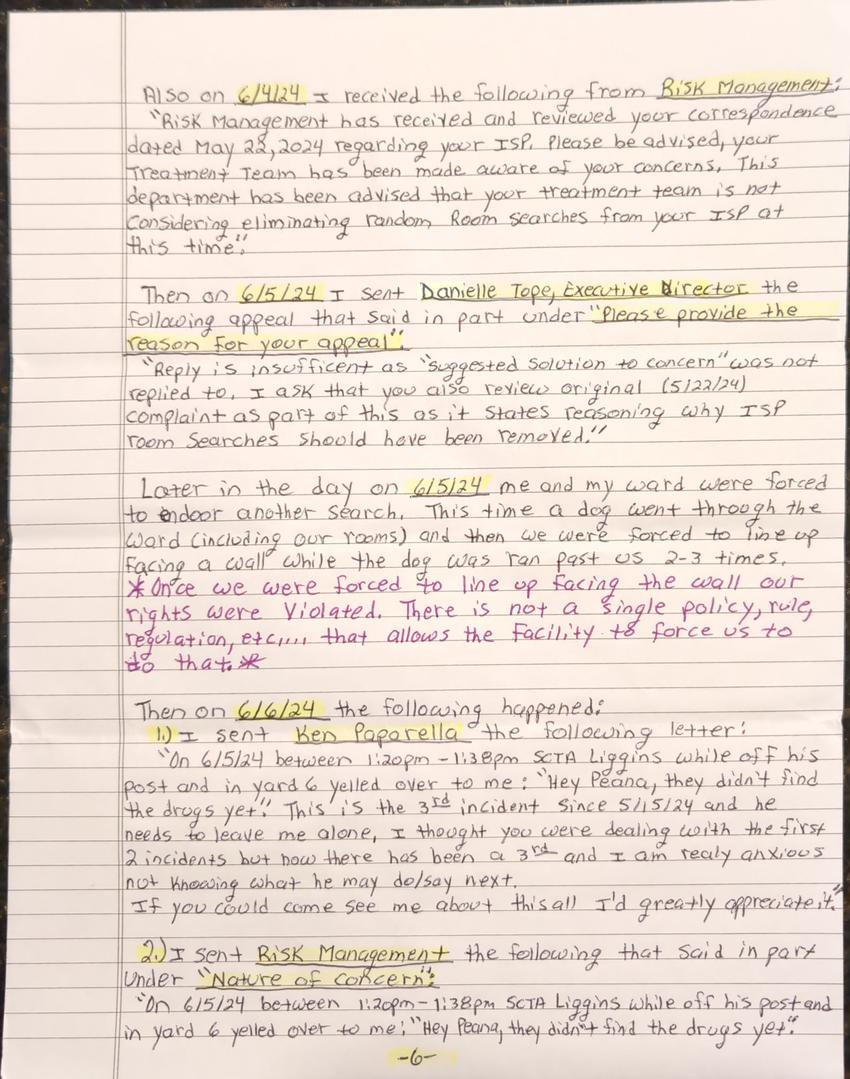 Also on 6/4/24 I received the following from Risk Management:
"Risk Management has received and reviewed your correspondence
dated May 22, 2024 regarding your ISP. Please be advised, your
Treatment Team has been made aware of your concerns. This
department has been advised that your treatment team is not
Considering eliminating random Room searches from your ISP at
this time".
Then on 6/5/24 I sent Danielle Tope, Executive Director the
following appeal that said in part under "Please provide the
reason for your appeal".
"Reply is insufficent as "suggested solution to concern" was not
replied to. I ask that you also review original (5/22/24)
complaint as part of this as it states reasoning why ISP
room searches should have been removed."
Later in the day on 6/5/24 me and my ward were forced
to endoor another search. This time a dog went through the
ward (including our rooms) and then we were forced to line up
facing a wall while the dog was ran past us 2-3 times.
*Once we were forced to line up facing the wall our
rights were violated. There is not a single policy, rule,
regulation, etc,... that allows the facility to force us to
do that.*
Then on 6/6/24 the following happened:
1.) I sent Ken Paparella the following letter:
"On 6/5/24 between 1:20pm - 1:38pm SCTA Liggins while off his
post and in yard 6 yelled over to me: "Hey Peana, they didn't find
the drugs yet". This is the 3rd incident since 5/15/24 and he
needs to leave me alone, I thought you were dealing with the first
2 incidents but now there has been a 3rd and I am realy anxious
not knowing what he may do/say next.
If you could come see me about this all I'd greatly appreciate it."
2.) I sent Risk Management the following that said in part
under "Nature of concern":
"On 6/5/24 between 1:20pm - 1:38pm SCTA Liggins while off his post and
in yard 6 yelled over to me: "Hey Peana, they didn't find the drugs yet".
-6-